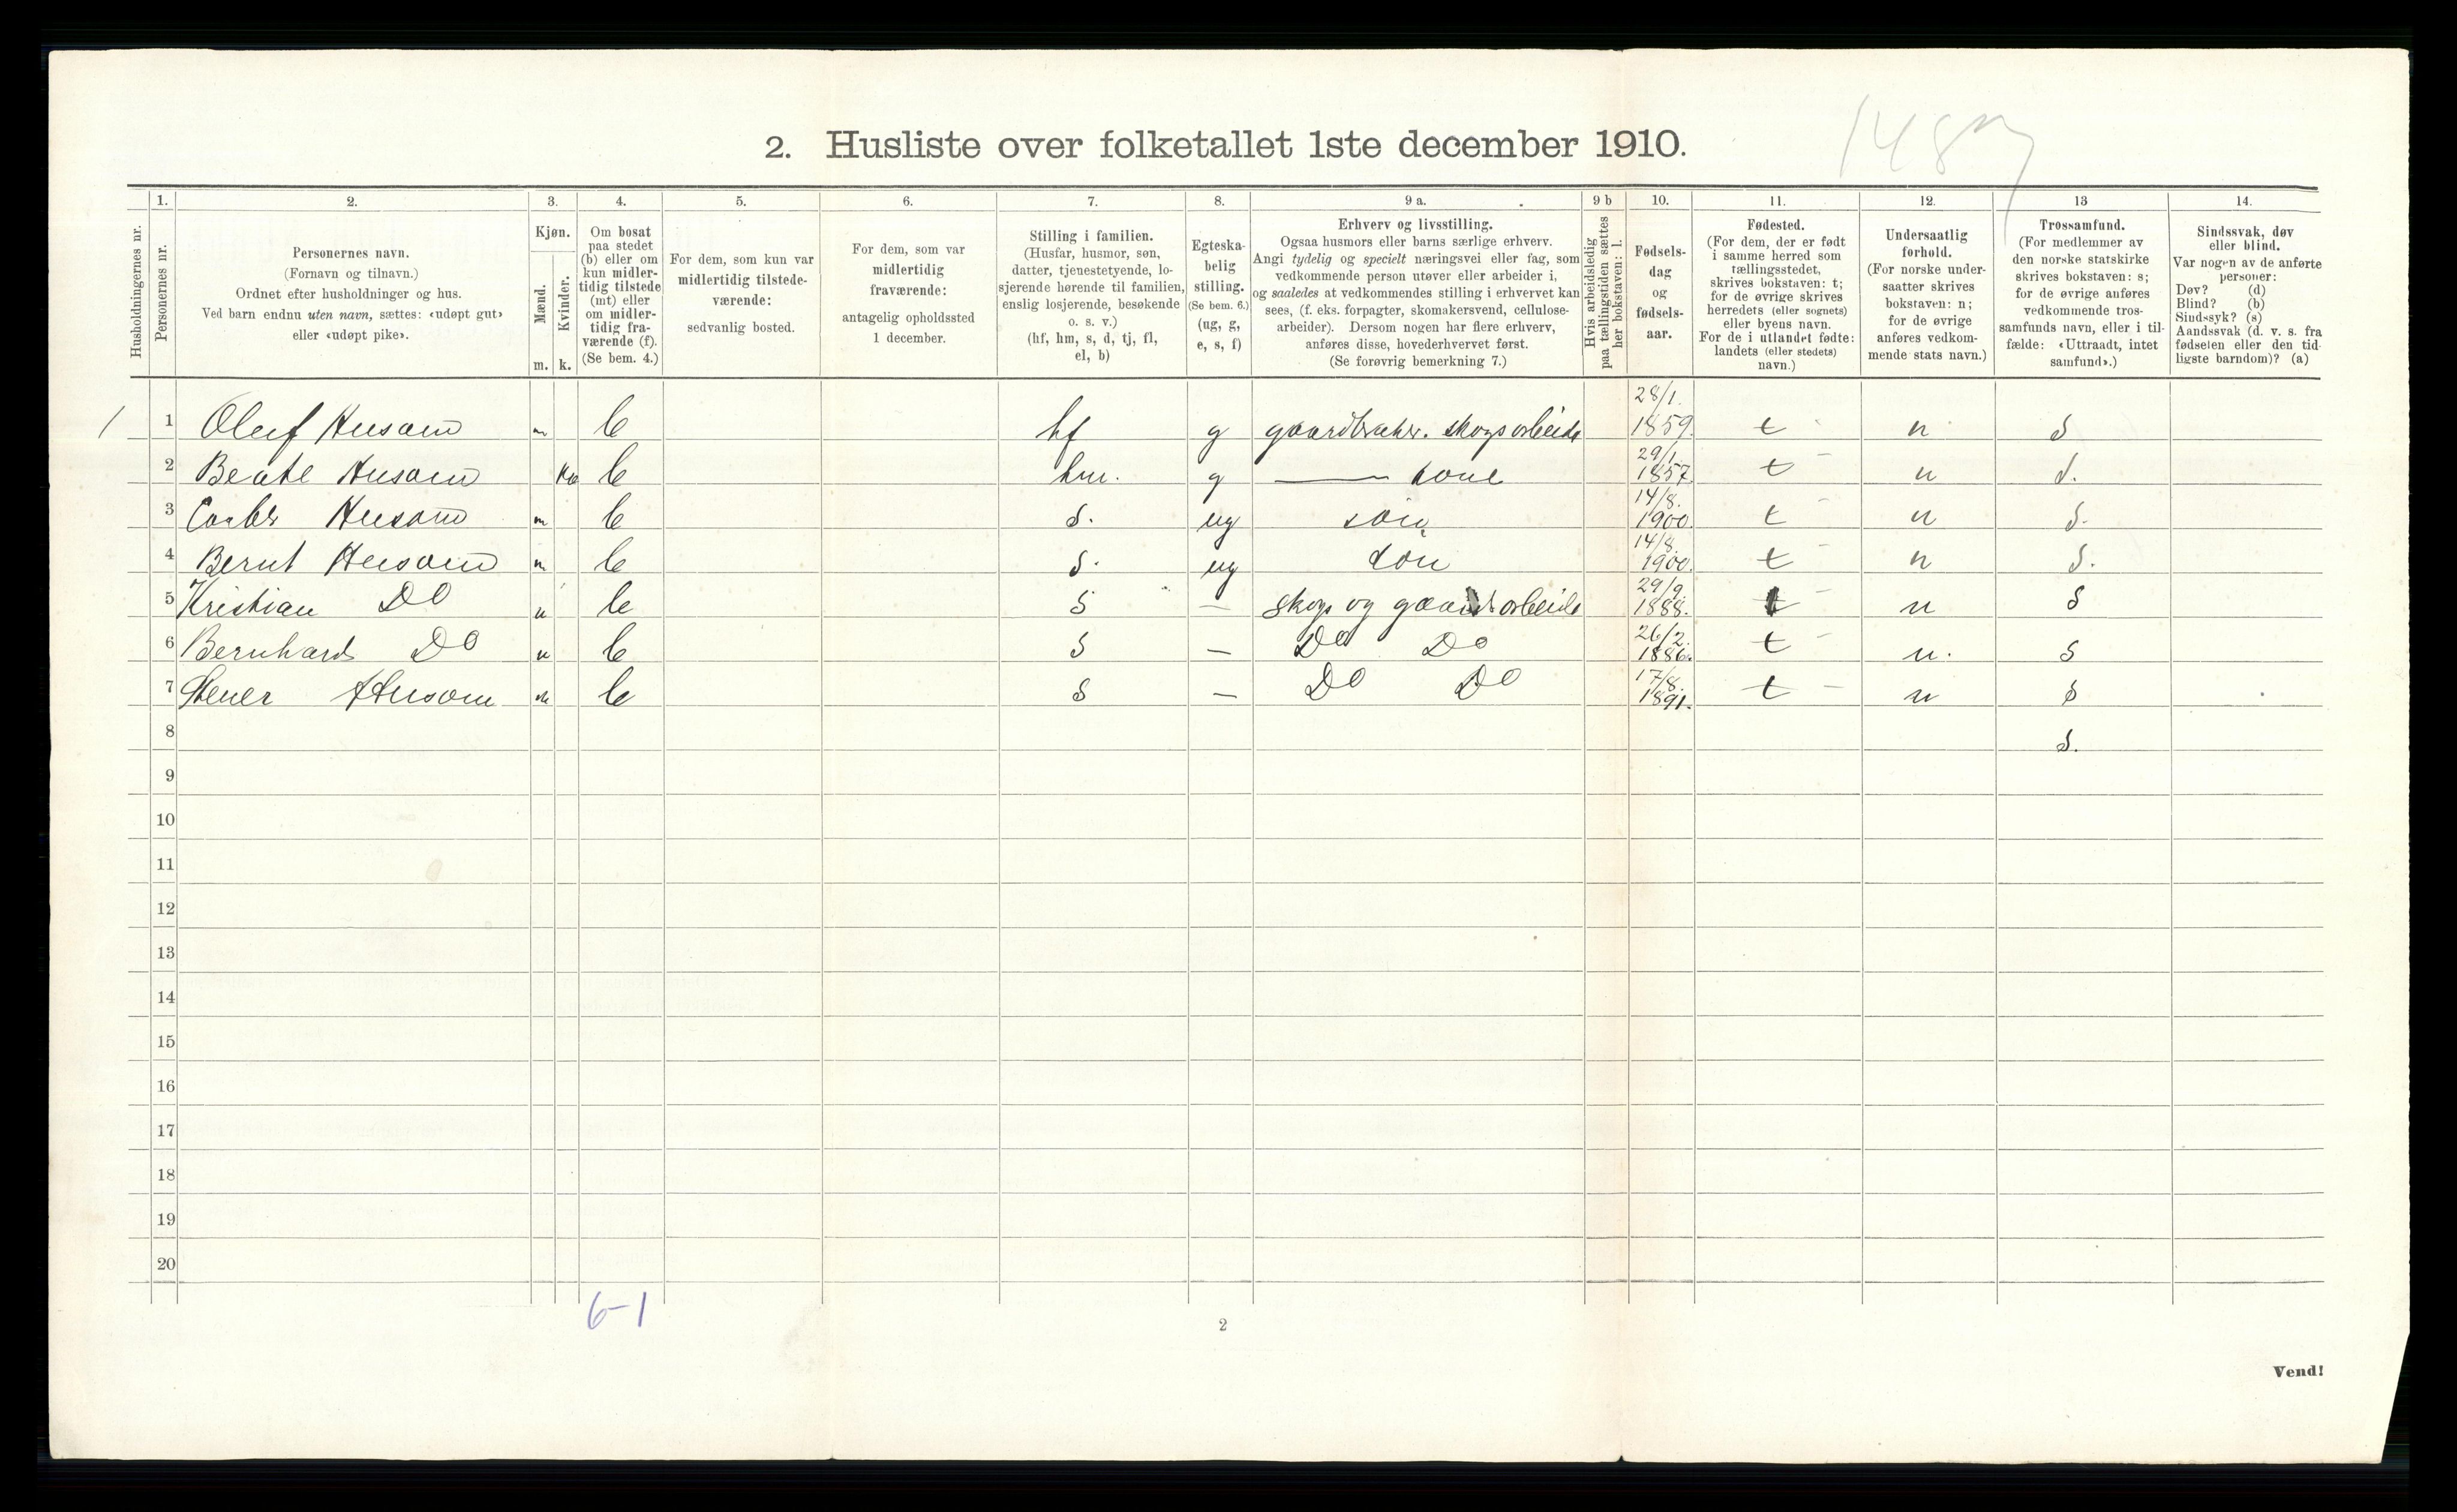 148
2. Husliste over folketallet 1ste december 1910.
Husholdningernes nr.
1.
Personernes nr.
2.
Personernes navn.
(Fornavn og tilnavn.)
Ordnet efter husholdninger og hus.
Ved barn endnu uten navn, sættes: «udøpt gut»
eller «udøpt pike».
3.
Kjøn.
Mænd.
Kvinder.
m. k.
4.
Om bosat
paa stedet
(b) eller om
kun midler-
tidig tilstede
(mt) eller
om midler-
tidig fra-
værende (f).
(Se bem. 4.)
5.
For dem, som kun var
midlertidig tilstede-
værende:
sedvanlig bosted.
6.
For dem, som var
midlertidig
fraværende:
antagelig opholdssted
1 december.
7.
Stilling i familien.
(Husfar, husmor, søn,
datter, tjenestetyende, lo-
sjerende hørende til familien,
enslig losjerende, besøkende
o. s. v.)
(hf, hm, s, d, tj, fl,
el, b)
8.
Egteska-
belig
stilling.
(Se bem. 6.)
(ug, g,
e, s, f)
9 a.
Erhverv og livsstilling.
Ogsaa husmors eller barns særlige erhverv.
Angi tydelig og specielt næringsvei eller fag, som
vedkommende person utøver eller arbeider i,
og saaledes at vedkommendes stilling i erhvervet kan
sees, (f. eks. forpagter, skomakersvend, cellulose-
arbeider). Dersom nogen har flere erhverv,
anføres disse, hovederhvervet først.
(Se forøvrig bemerkning 7.)
9 b
Hvis arbeidsledig
paa tællingstiden sættes
her bokstaven: l.
10.
Fødsels-
dag
og
fødsels-
aar.
11.
Fødested.
(For dem, der er født
i samme herred som
tællingsstedet,
skrives bokstaven: t;
for de øvrige skrives
herredets (eller sognets)
eller byens navn.
For de i utlandet fødte:
landets (eller stedets)
navn.)
12.
Undersaatlig
forhold.
(For norske under-
saatter skrives
bokstaven: n;
for de øvrige
anføres vedkom-
mende stats navn.)
13
Trossamfund.
(For medlemmer av
den norske statskirke
skrives bokstaven: s;
for de øvrige anføres
vedkommende tros-
samfunds navn, eller i til-
fælde: «Uttraadt, intet
samfund».)
14.
Sindssvak, døv
eller blind.
Var nogen av de anførte
personer:
Døv? (d)
Blind? (b)
Sindssyk? (s)
Aandssvak (d. v. s. fra
fødselen eller den tid-
ligste barndom)? (a)
1 1 Oluf Husom m b hf g gaardbruker. skogsarbeide 28/1. 1859. t n s
2 Beate Husom k b hm. g — kone 29/1. 1857. t n s.
3 Husom m b s. ug søn 14/8. 1900. t n s.
4 Bernt Husom m b s. ug søn 14/8. 1900. t n s.
5 Kristian Do m b s — skogs og gaardsarbeide 29/9. 1888. t n s
6 Bernhard Do m b s — Do Do 26/2. 1886. t n. s
7 Husom m b s — Do Do 17/8. 1891. t n s
8 s.
9
10
11
12
13
14
15
16
17
18
19
20
6-1
2
Vend!